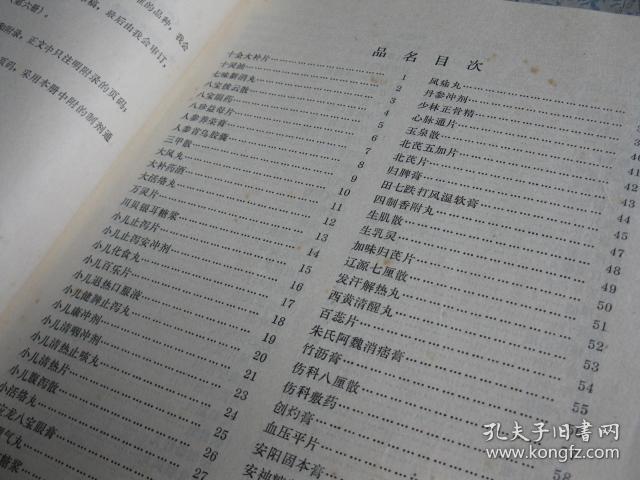 准的品种，我会
稿，最后由我会审订，
(第六册)。
附录，正文中只注明附录的页码，
页码，采用本册中附的制剂通
品名目次
十全大补片 1
十灵油 2
七味新消丸 3
八宝拨云散 4
八宝眼药 5
八珍益母片 6
人参养荣膏 7
人参首乌胶囊 8
三甲散 9
大风丸 10
大补药酒 11
大活络丸 12
万灵片 13
川贝银耳糖浆 14
小儿止泻片 15
小儿止泻安冲剂 16
小儿化食丸 17
小儿百乐片 18
小儿退热口服液 19
小儿健脾止泻丸 20
小儿康冲剂 21
小儿清咽冲剂 22
小儿清热止咳丸 23
小儿清热片 24
小儿腹泻散 25
小活络丸 26
27
龙八宝眼膏
气丸
糖浆
风痛丸
丹参冲剂
少林正骨精
心脉通片
玉泉散 40
北芪五加片 41
北芪片 42
归脾膏 43
田七跌打风湿软膏 44
四制香附丸 45
生肌散 46
生乳灵 47
加味归芪片 48
辽源七厘散 49
发汗解热丸 50
西黄清醒丸 51
百蕊片 52
朱氏阿魏消痞膏 53
竹沥膏 54
伤科八厘散 55
伤科敷药
创灼膏
血压平片 58
安阳固本膏
安神糖
孔夫子旧书网
www.kongfz.com